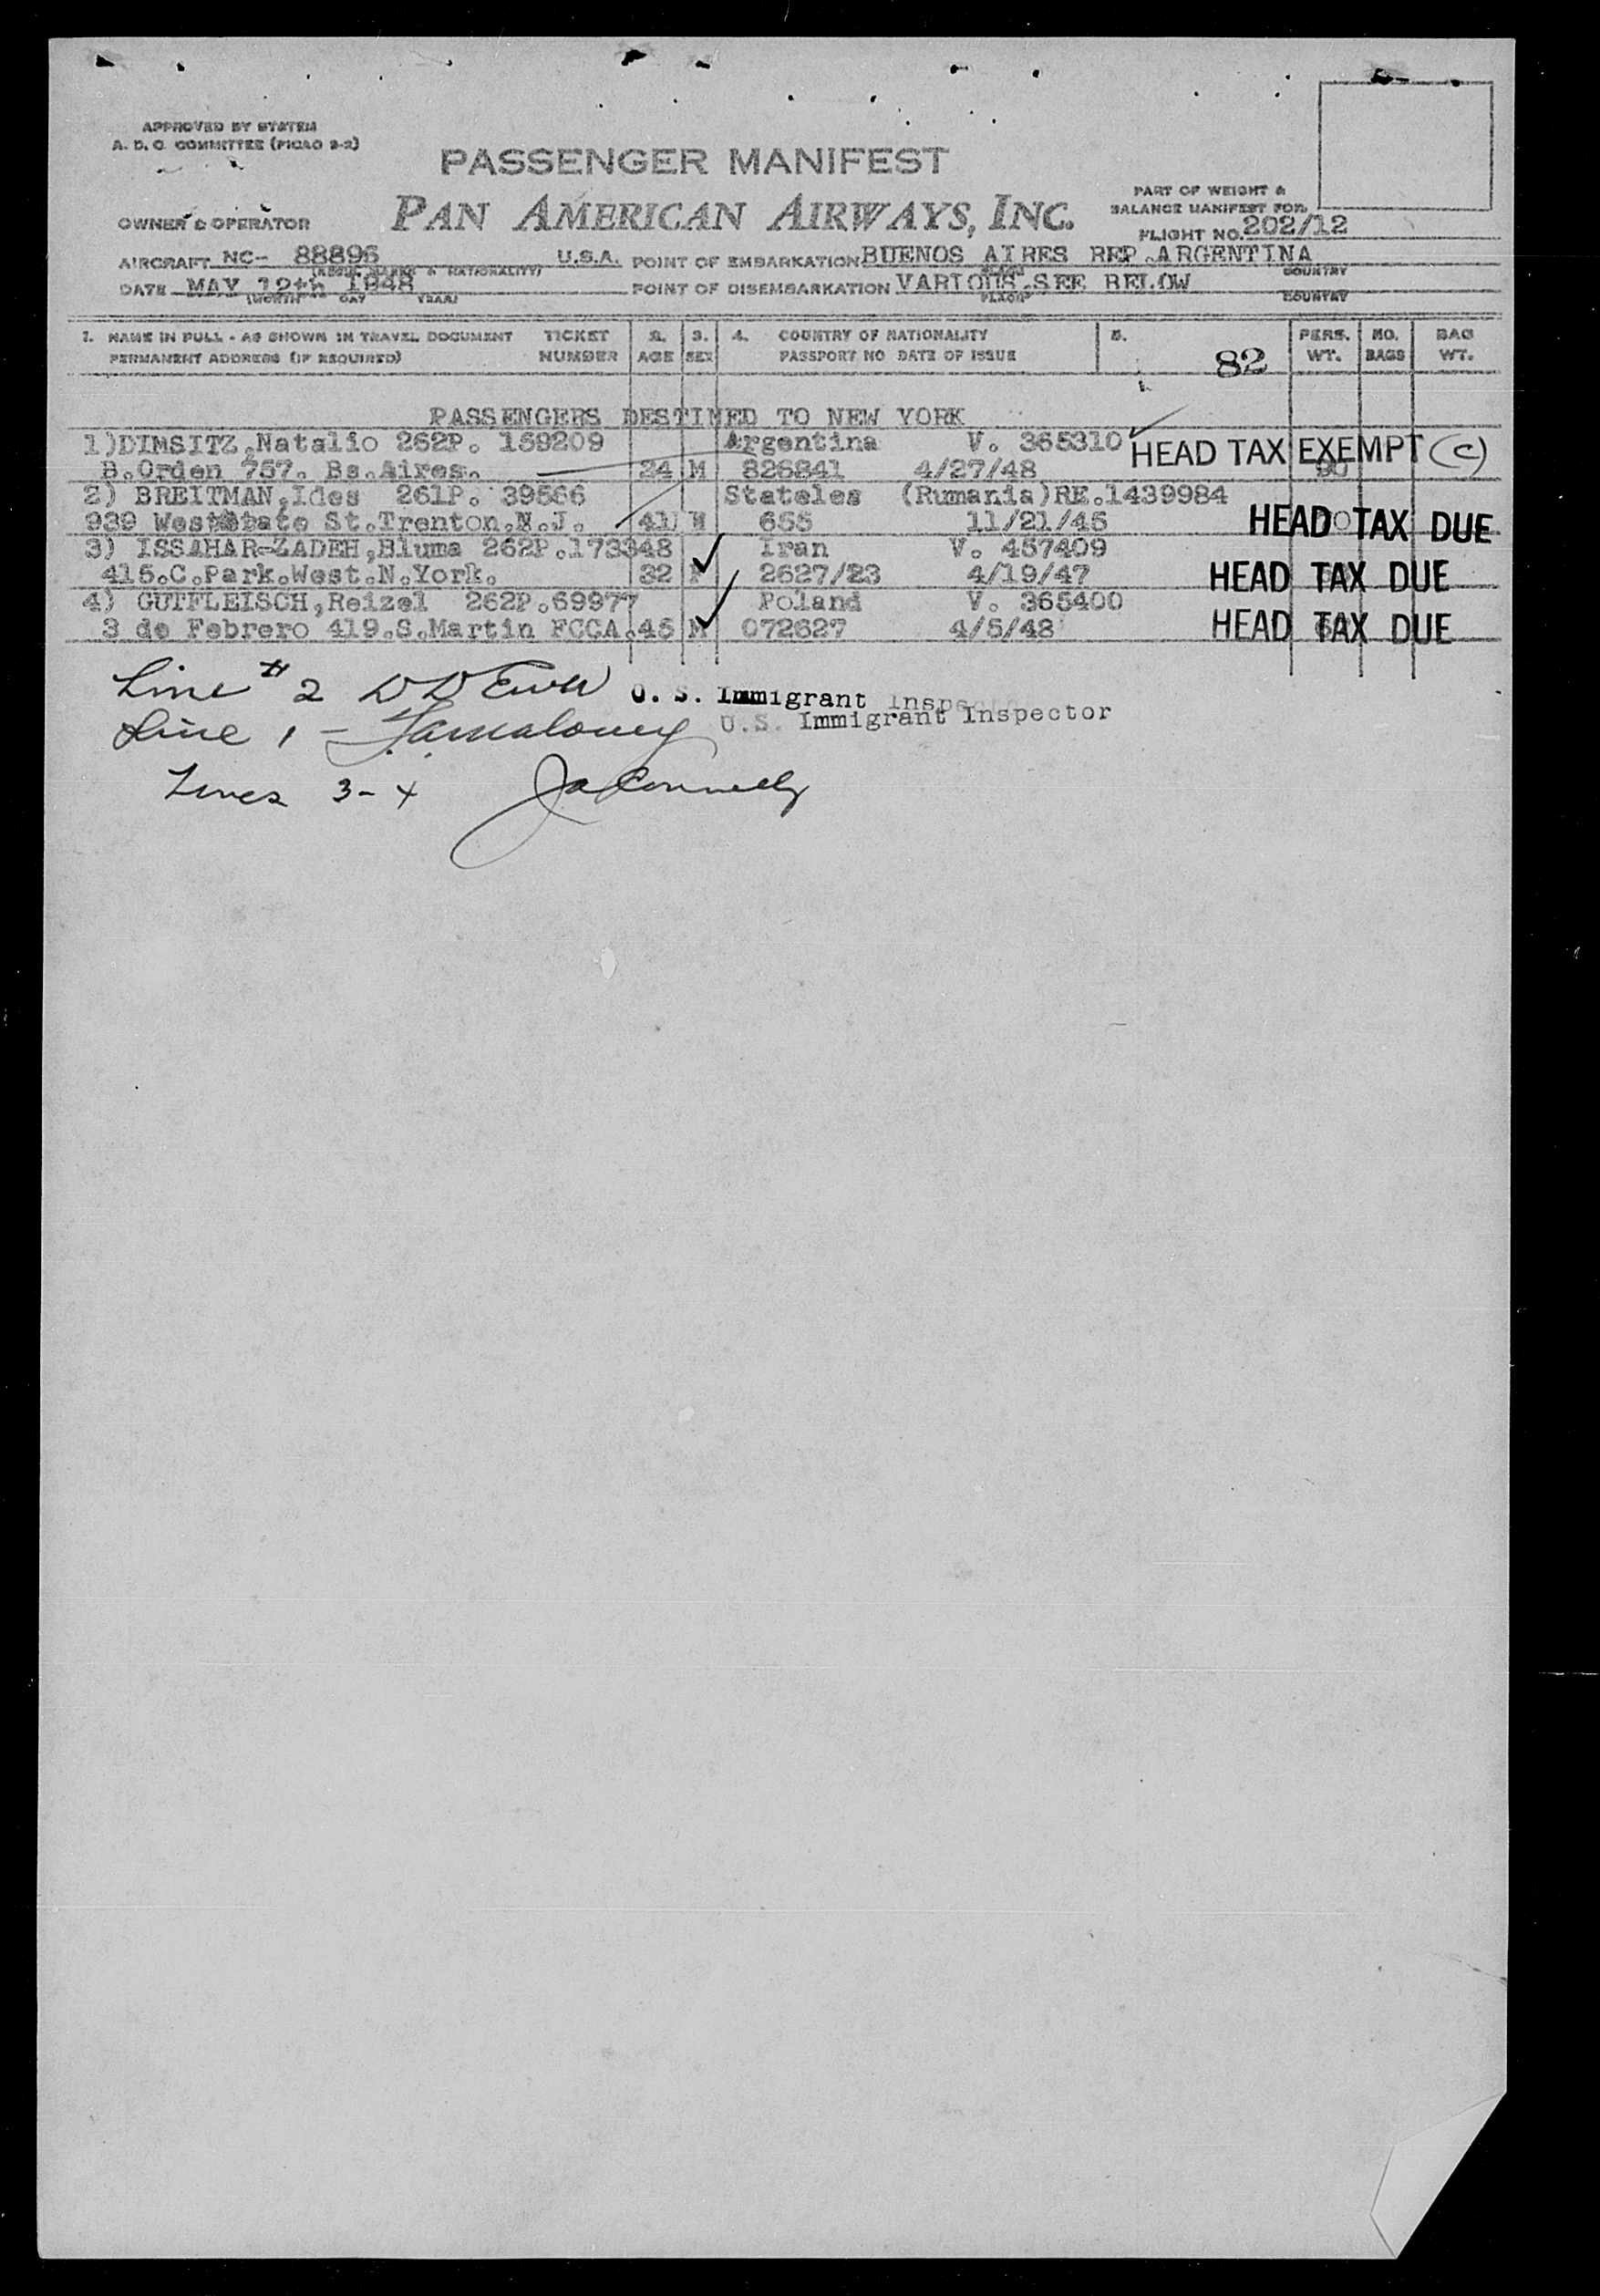 APPROVED BY SYSTEM
A. D. C. COMMITTEE (PICAO 3-2)
PASSENGER MANIFEST
PART OF WEIGHT &
BALANCE MANIFEST FOR
OWNER & OPERATOR PAN AMERICAN AIRWAYS, INC. FLIGHT NO. 202/12
AIRCRAFT NC- 88896 U.S.A. POINT OF EMBARKATION BUENOS AIRES REP.ARGENTINA
(REGIS. MARKS & NATIONALITY) PLACE COUNTRY
DATE MAY 12th 1948 POINT OF DISEMBARKATION VARIOUS.SEE BELOW
(MONTH DAY YEAR) PLACE COUNTRY
1. NAME IN FULL - AS SHOWN IN TRAVEL DOCUMENT TICKET 2. 3. 4. COUNTRY OF NATIONALITY 5. PERS. NO. BAG
PERMANENT ADDRESS (IF REQUIRED) NUMBER AGE SEX PASSPORT NO DATE OF ISSUE 82 WT. BAGS WT.
PASSENGERS DESTINED TO NEW YORK
1)DIMSITZ,Natalio 262P. 159209 Argentina V. 365310 HEAD TAX EXEMPT (C)
B.Orden 757. Bs.Aires. 24 M 826841 4/27/48
2) BREITMAN,Ides 261P. 39566 Stateles (Rumania)RE.1439984
939 West State St.Trenton.N.J. 41 M 655 11/21/45 HEAD TAX DUE
3) ISSAHAR-ZADEH,Bluma 262P.173348 Iran V. 457409
415.C.Park.West.N.York. 32 F 2627/23 4/19/47 HEAD TAX DUE
4) GUTFLEISCH,Reizel 262P.69977 Poland V. 365400
3 de Febrero 419.S.Martin FCCA.45 M 072627 4/5/48 HEAD TAX DUE
Line #2 U. S. Immigrant Inspector
Line 1 - U.S. Immigrant Inspector
Lines 3-4 JaConnelly